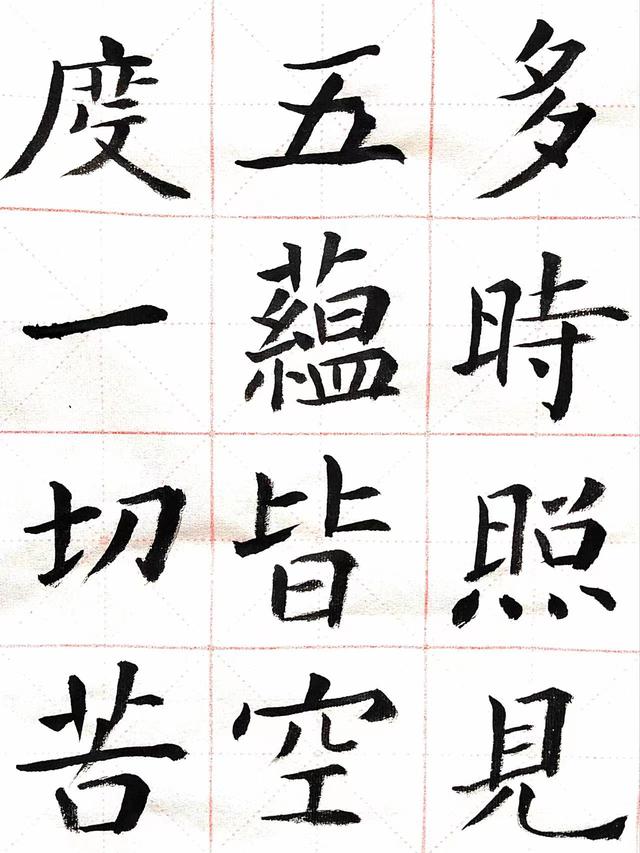 多時照見
五蘊皆空
度一切苦